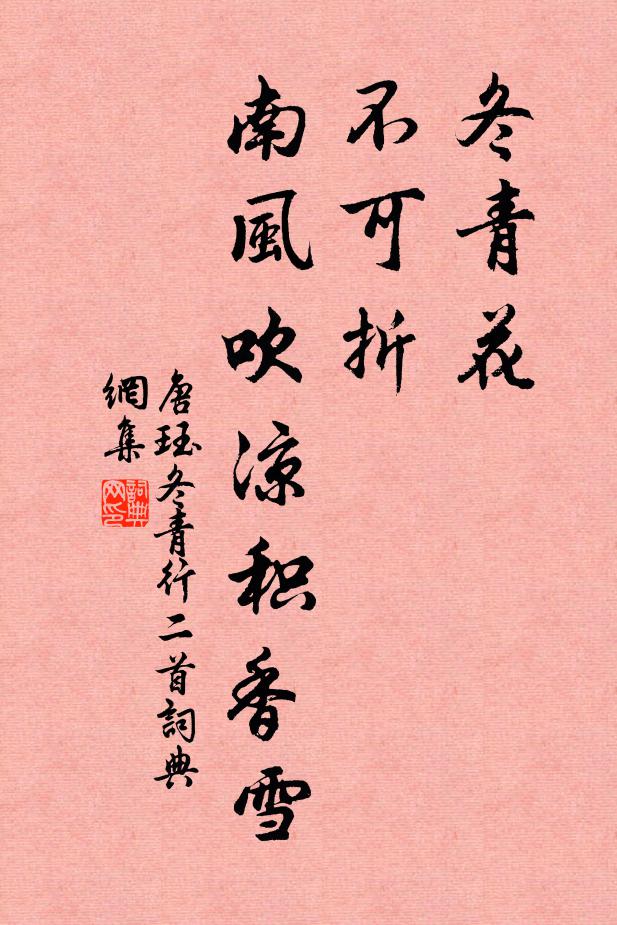 冬青花
不可折
南風吹涼积香雪
唐珏冬青行二首詞典
網集
詞典
网印